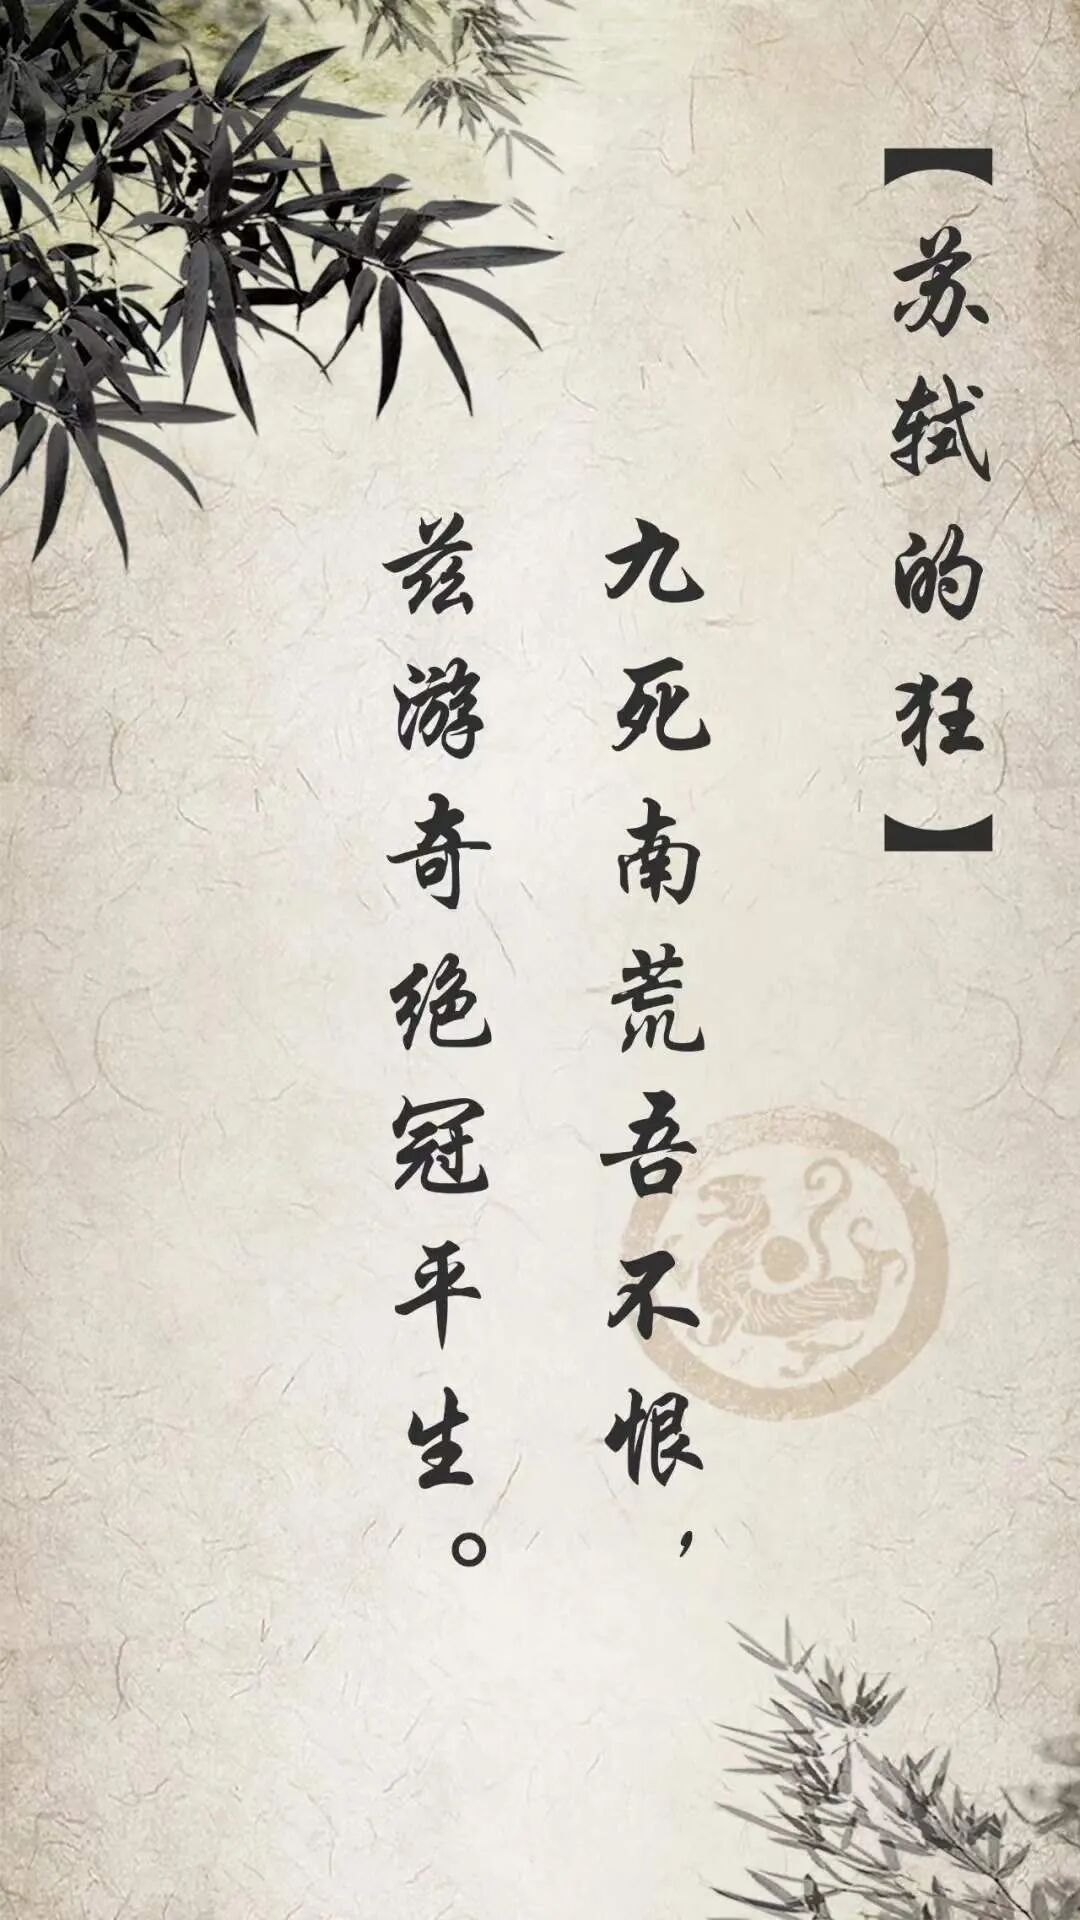 【苏轼的狂】
九死南荒吾不恨，
兹游奇绝冠平生。